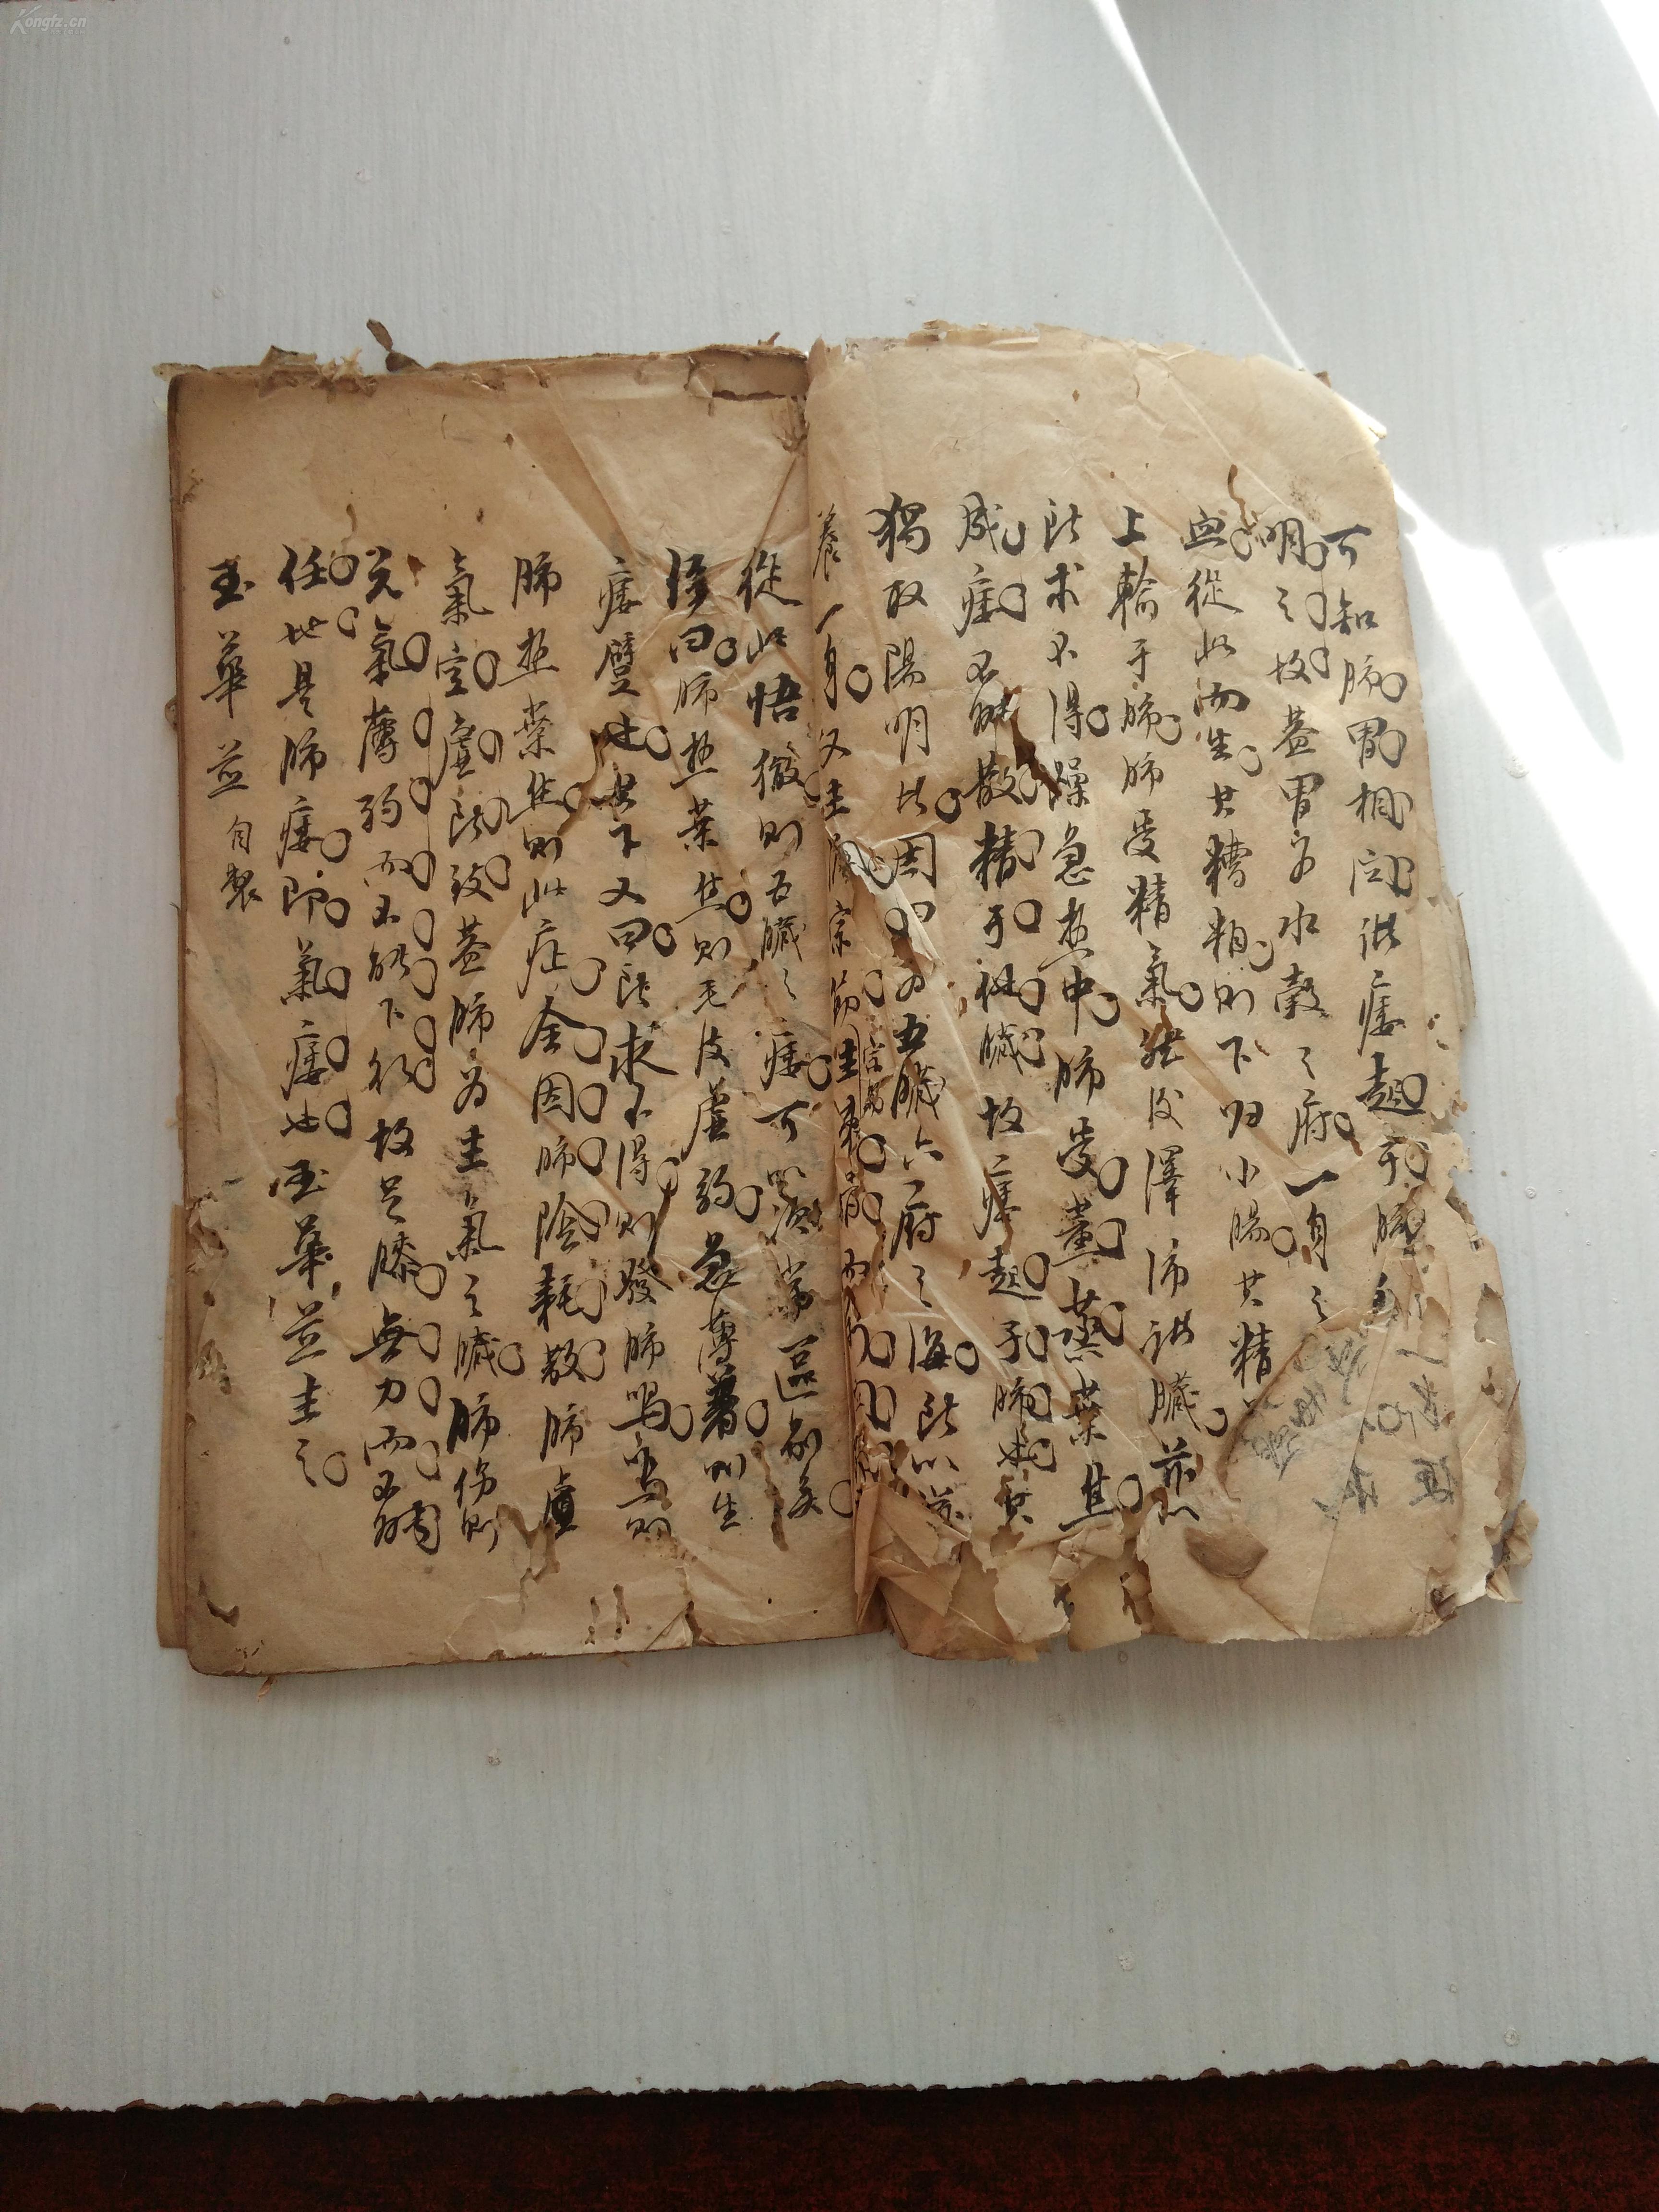 可知肺胃相関法痿起于肺
明之故蓋胃为水穀之府一身之
血從此而生其糟粕則下归小腸其精
上輸于肺肺受精氣然後澤沛諸臓
所求不得躁急熱中肺受薰蒸葉焦
成痿不能散精于他臓故痿起于肺也其
獨取陽明者因为五臓六府之海所以
養一身又主潤宗筋主束骨
從此悟徹則五臓之痿可照常區别矣
經曰肺熱葉焦則毛皮虚弱急薄著則生
痿躄也其下又曰所求不得則發肺鳴鳴則
肺熱葉焦則此症全因肺陰耗散肺虚
氣空虚所致蓋肺为主氣之臓肺伤則
元氣薄弱而不能下行故足膝無力而不能
任地是肺痿即氣痿也玉華煎主之
玉華煎 自製
Kongfz.cn